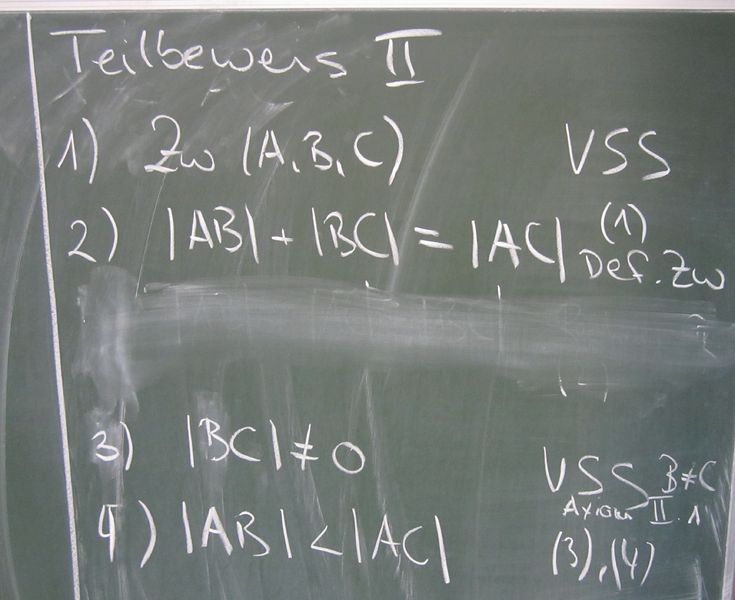 Teilbeweis II
1) Zw (A, B, C) VSS
2) |AB| + |BC| = |AC| (1)
Def. Zw
3) |BC| ≠ 0 VSS B≠C
Axiom II.1
4) |AB| < |AC| (3), (4)